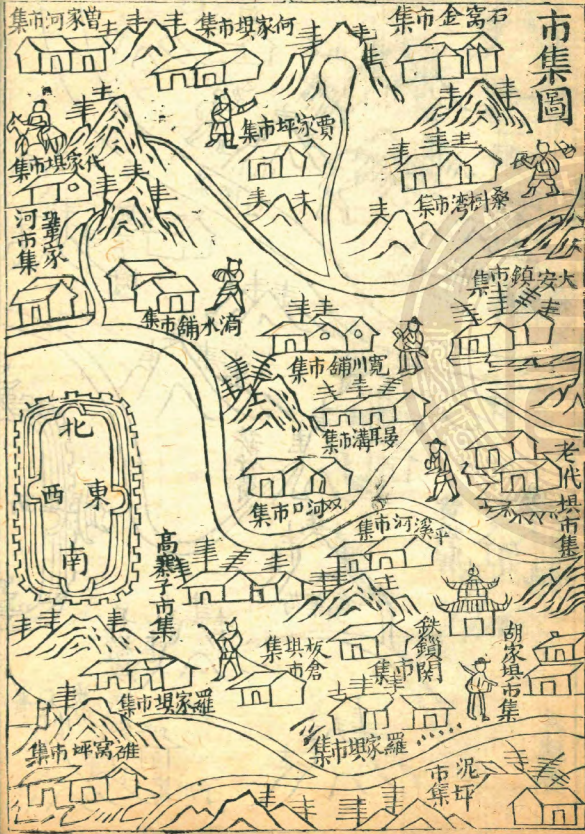 市集圖
石窩金市集
何家垻市集
曾家河市集
賈家坪市集
代家垻市集
桑樹湾市集
鞏家河市集
大安鎮市集
滴水鋪市集
寬川鋪市集
晏耳溝市集
老代垻市集
双河口市集
平溪河市集
北
東
西
南
高寨子市集
鉄鎖関市集
板倉垻市集
胡家垻市集
羅家垻市集
羅家垻市集
碓窩坪市集
泥坪市集